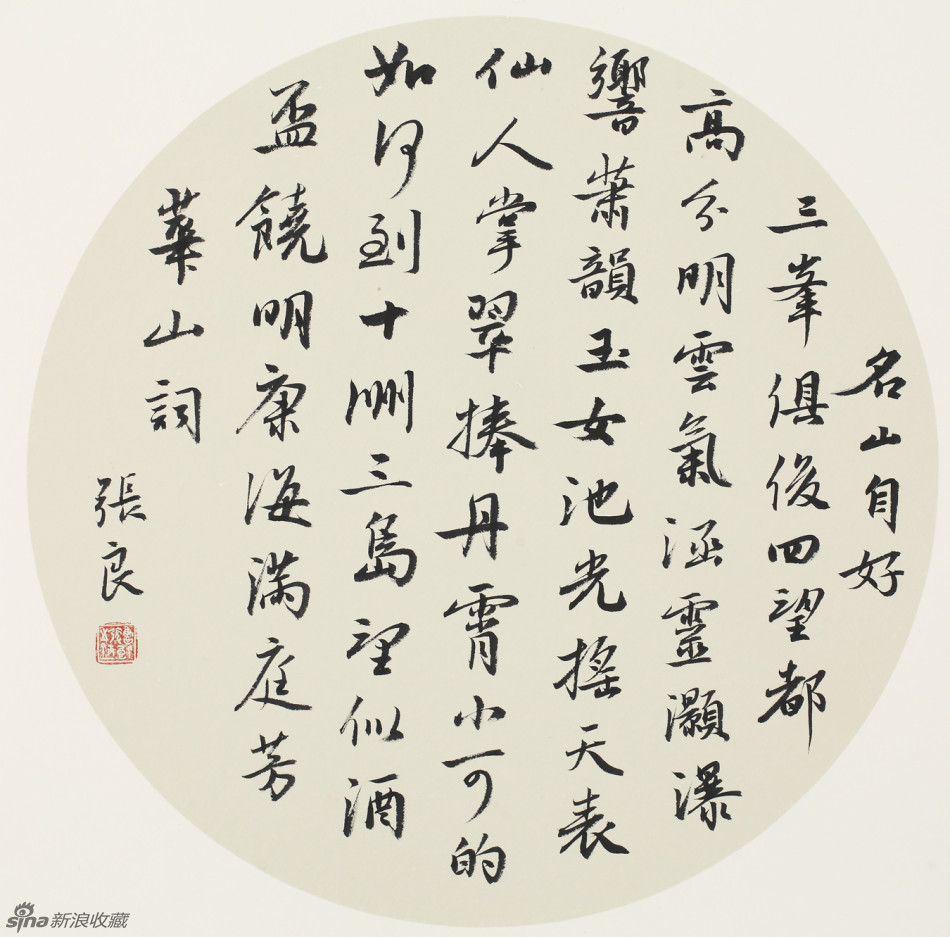 名山自好
三峯俱後四望都
高分明雲氣涵靈灝瀑
響蕭韻玉女池光搖天表
仙人掌翠捧丹霄小可的
如何到十洲三島望似酒
盃饒明康海滿庭芳
華山詞
張良
sina新浪收藏